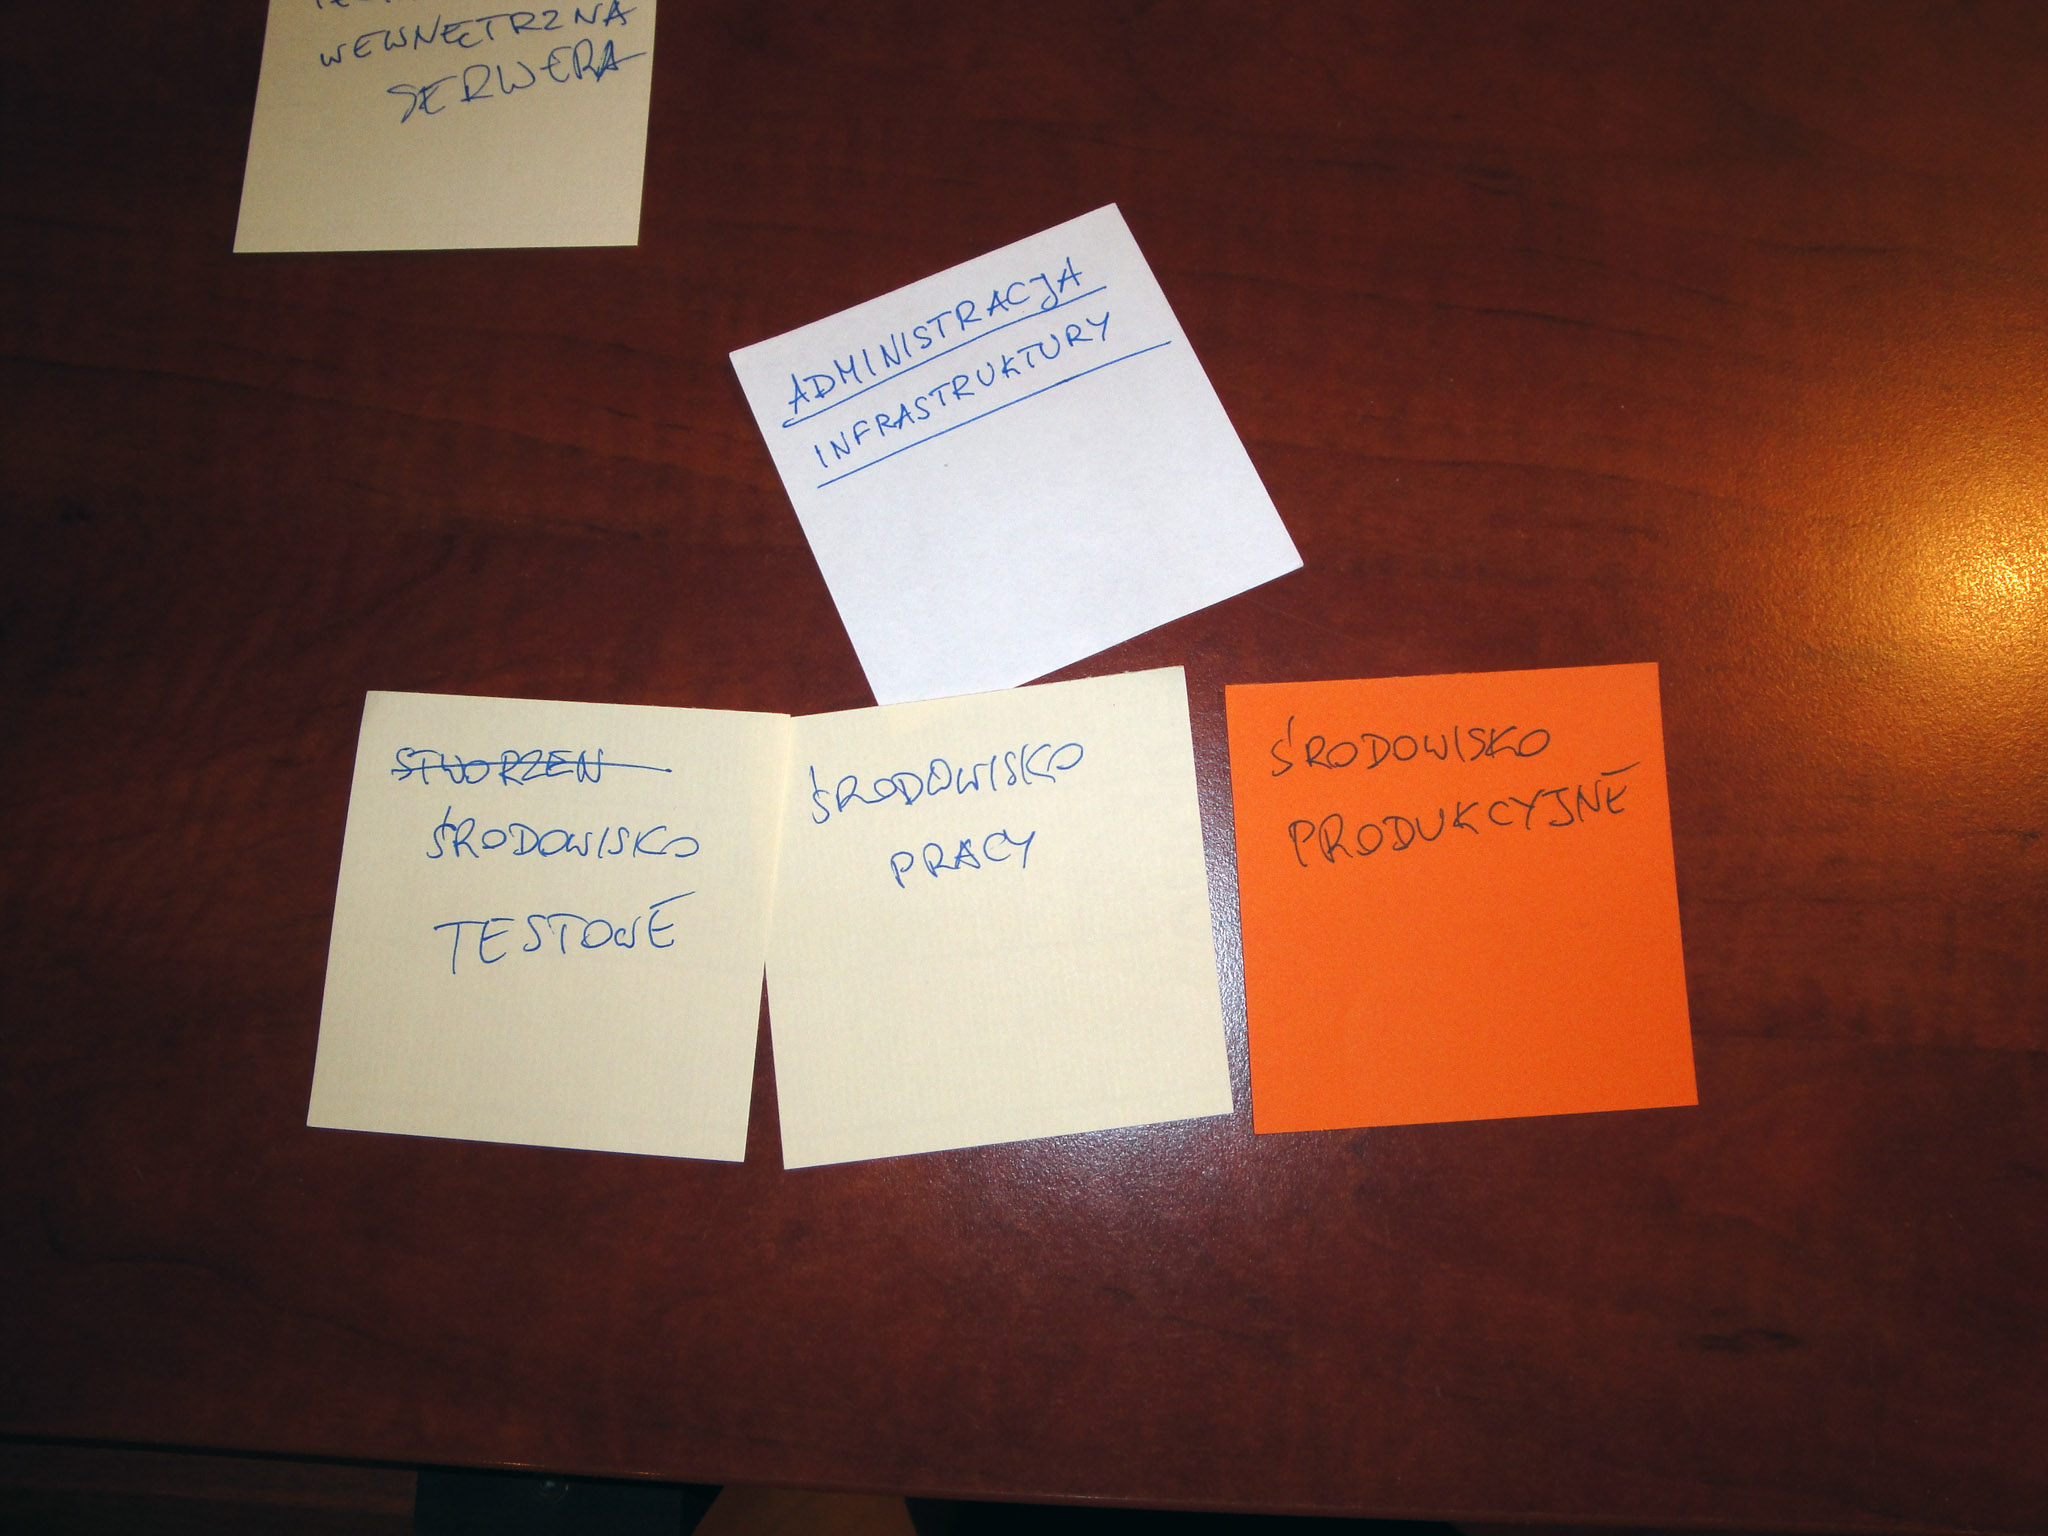 WEWNĘTRZNA
SERWERA
ADMINISTRACJA
INFRASTRUKTURY
STWORZEN
ŚRODOWISKO
TESTOWE
ŚRODOWISKO
PRACY
ŚRODOWISKO
PRODUKCYJNE